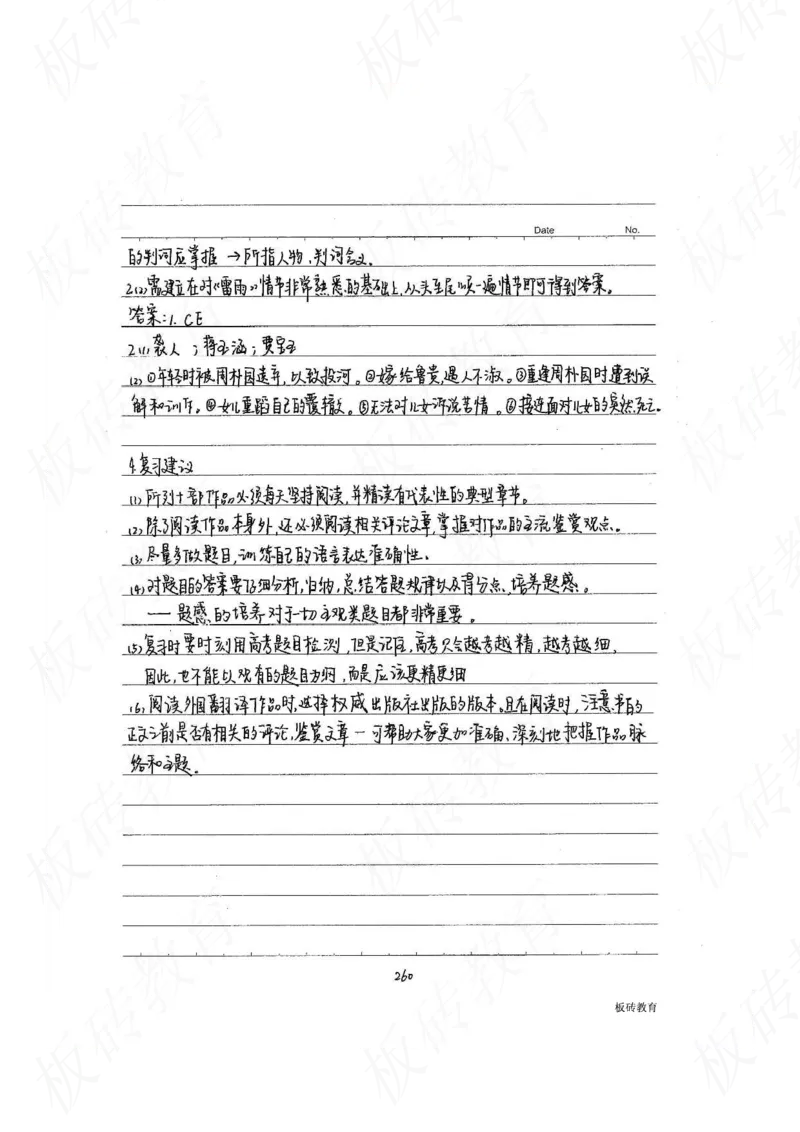 Date No.
的判词应掌握 →所指人物、判词含义.
2.(2)需建立在对《雷雨》情节非常熟悉的基础上,从头至尾顺一遍情节即可得到答案。
答案:1. CE
2.(1)袭人;蒋玉涵;贾宝玉
(2)①年轻时被周朴园遗弃,以致投河。②嫁给鲁贵,遇人不淑。③重逢周朴园时遭到误
解和训斥。④女儿重蹈自己的覆辙。⑤无法对儿女诉说苦情。⑥接连面对儿女的突然死亡.
4.复习建议
(1)所列十部作品必须每天坚持阅读,并精读有代表性的典型章节。
(2)除了阅读作品本身外,还必须阅读相关评论文章,掌握对作品的主流鉴赏观点.
(3)尽量多做题目,训练自己的语言表达准确性.
(4)对题目的答案要仔细分析,归纳,总结答题规律以及得分点、培养题感。
—— 题感的培养对于一切主观类题目都非常重要。
(5)复习时要时刻用高考题目检测,但是记住,高考只会越考越精,越考越细.
因此,也不能以现有的题目为纲,而是应该更精更细
(6)阅读外国翻译作品时,选择权威出版社出版的版本.且在阅读时,注意书的
正文之前是否有相关的评论,鉴赏文章 — 可帮助大家更加准确、深刻地把握作品脉
络和主题.
260
板砖教育